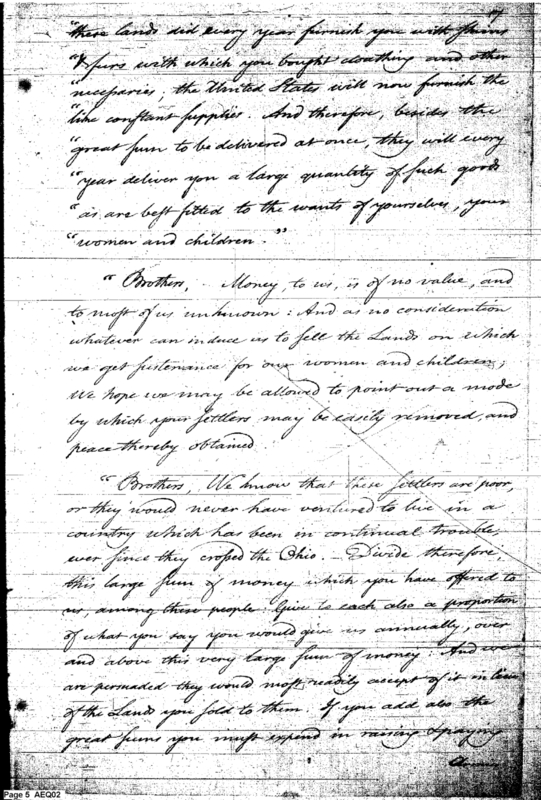 7
"these lands did every year furnish you with skins
"& furs with which you bought cloathing and other
"necessaries; the United States will now furnish the
"like constant supplies. And therefore, besides the
"great sum to be delivered at once, they will every
"year deliver you a large quantity of such goods
"as are best fitted to the wants of yourselves, your
"women and children."
"Brothers, Money, to us, is of no value, and
to most of us unknown: And as no consideration
whatever can induce us to sell the Lands on which
we get sustenance for our women and children;
We hope we may be allowed to point out a mode
by which your settlers may be easily removed, and
peace thereby obtained.
"Brothers, We know that these settlers are poor,
or they would never have ventured to live in a
country which has been in continual trouble,
ever since they crossed the Ohio. Divide therefore,
this large sum of money which you have offered to
us, among these people: Give to each also a proportion
of what you say you would give us annually, over
and above this very large sum of money: And we
are persuaded they would most readily accept of it in lieu
of the Lands you sold to them. If you add also the
great sums you must expend in raising & paying
Page 5 AEQ02